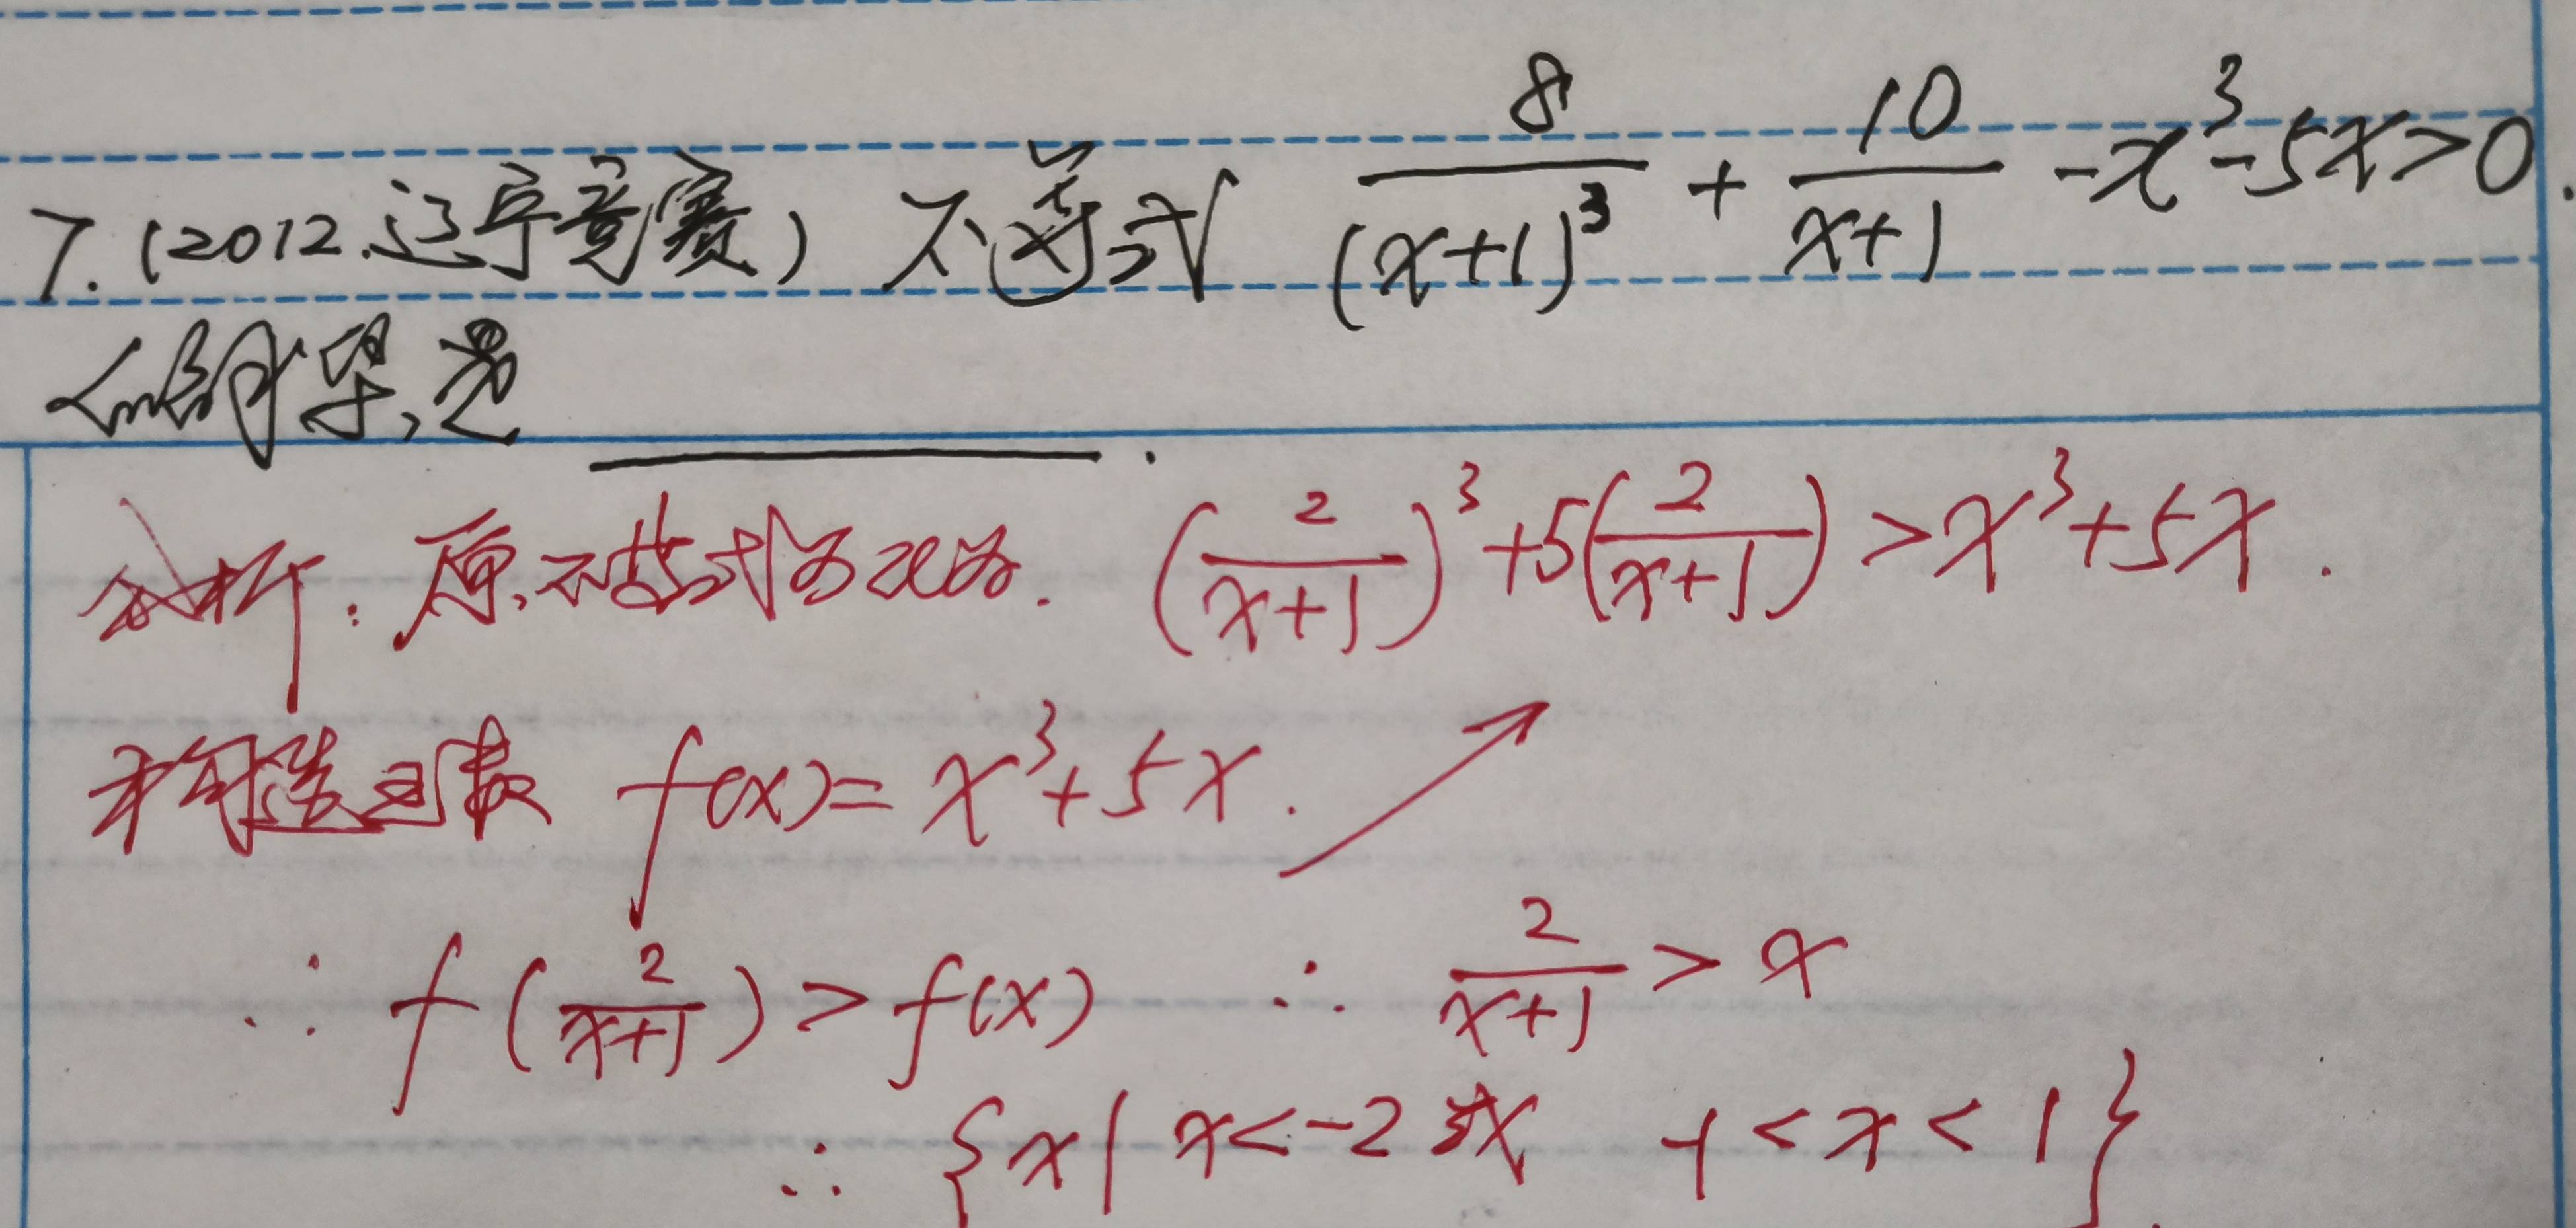 7. (2012.辽宁竞赛) 不等式 8/(x+1)³ + 10/(x+1) - x³ - 5x > 0.
的解集是 ________.
分析: 原不等式可改为. (2/(x+1))³ + 5(2/(x+1)) > x³ + 5x.
构造函数 f(x) = x³ + 5x. ↗
∴ f(2/(x+1)) > f(x) ∴ 2/(x+1) > x
∴ {x | x < -2 或 -1 < x < 1}